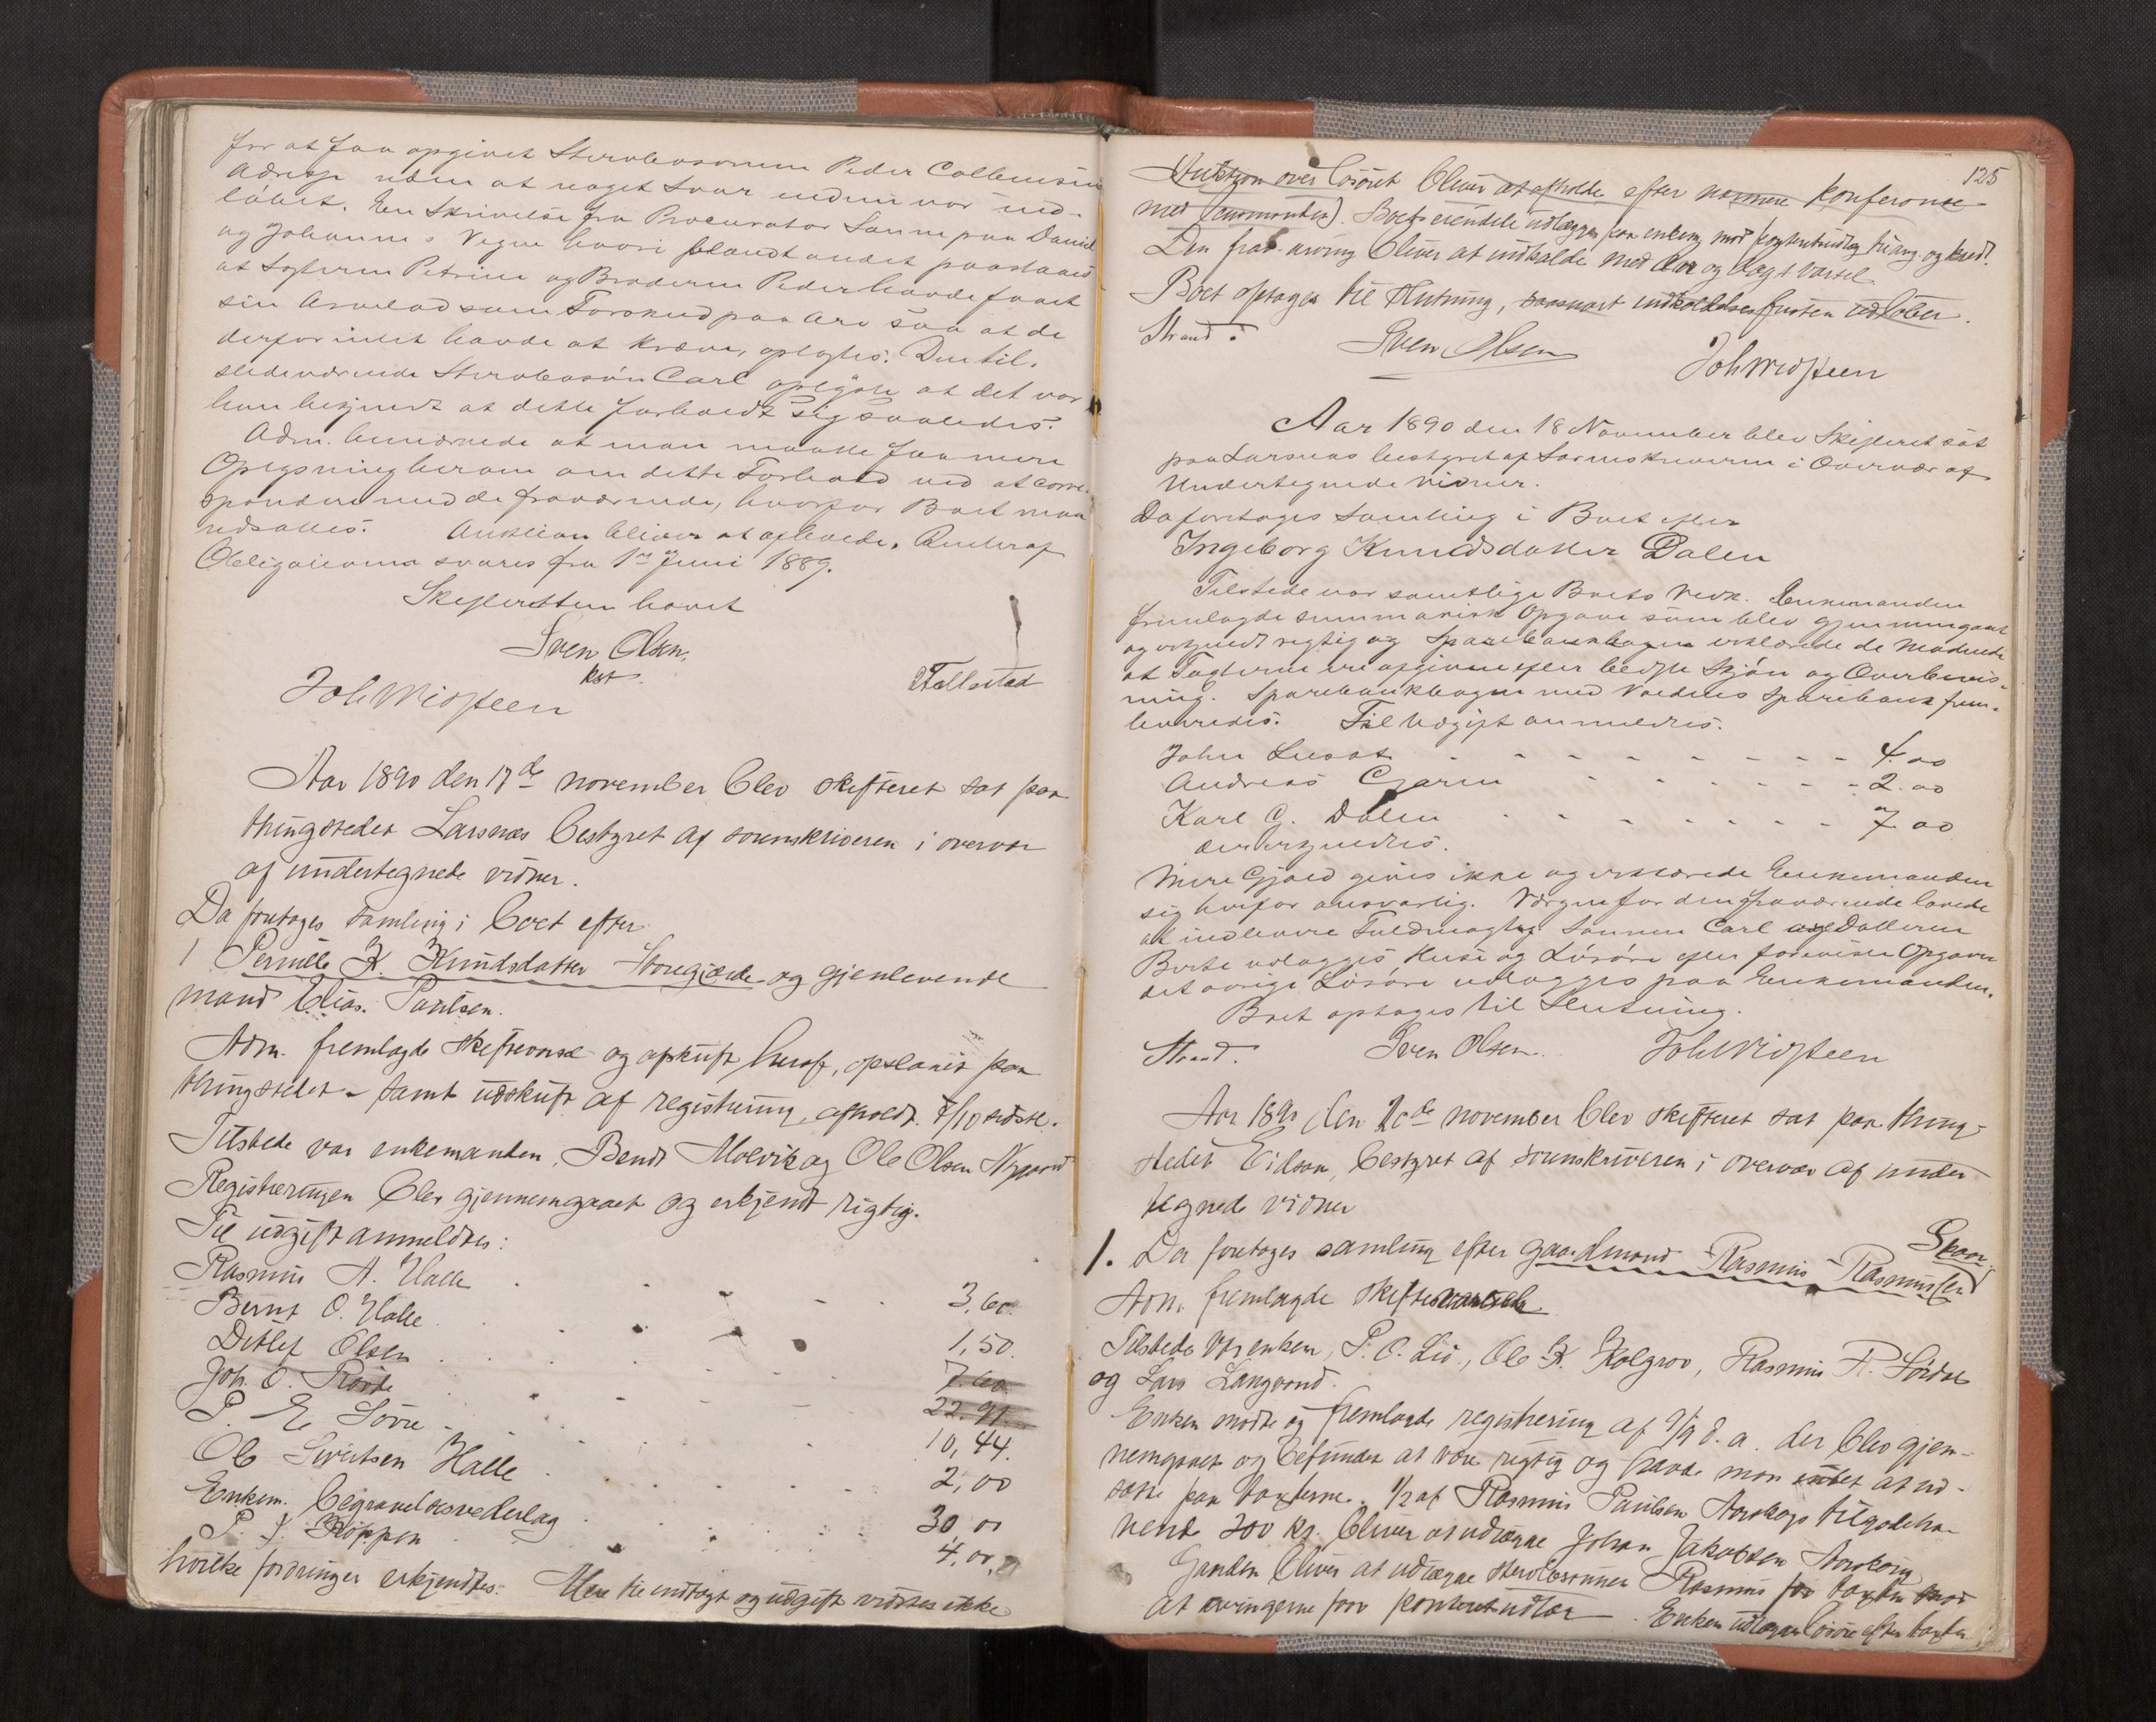 for at faa opgivet Stervbosønnen Peder Collensins
Adresse uden at noget Svar endnu var ind-
løbet. En Skrivelse fra Procurator Sanne paa Daniel
og Johannes Vegne hvori blandt andet paastaaes
at Søsteren Petrine og Broderen Peder havde faaet
sin Arvelod som Forskud paa Arv saa at de
derfor intet havde at kræve, oplæstes. Den til-
stedeværende Sterbosøn Carl oplyste at det var
ham bekjendt at dette forholdt sig saaledes.
Adm. bemærkede at man maatte faa mere
Oplysning herom om dette Forhold ved at corre-
spondere med de fraværende, hvorfor Boet maa
udsættes. Auktion bliver at afholde. Renter af
Obligationen svares fra 1ste Juni 1889.
Skifteretten hævet
Sven Olsen
kst.
Joh Midsteen
Follestad
Aar 1890 den 17de november blev skifteret sat paa
thingstedet Larsnæs bestyret af sorenskriveren i overvær
af undertegnede vidner.
Da foretages samling i boet efter
1 Pernille K. Knudsdatter Storegjerde og gjenlevende
mand Elias Paulsen.
Adm. fremlagde skiftevarsel og afskrift heraf, opslaaet paa
thingstedet – samt udskrift af registrering, afholdt 7/10 sidstl.
Tilstede var enkemanden, Bendt Molvik og Ole Olsen
Registreringen blev gjennemgaaet og erkjendt rigtig.
Til udgift anmeldtes:
Rasmus A. Halle 3,60.
Bernt O. Halle 1,50.
Detlef Olsen 7.60
Joh. O. Røide 22.91
P. E. Sørre 10,44.
Ole Sivertsen Halle 2,00
Enkem. begravelsesvederlag 30,00
P. J. Koppen 4,00,
hvilke fordringer erkjendtes. Mere til indtægt og udgift vidstes ikke
125
Auktion over løsøret bliver at afholde efter nærmere konferance
med (enkemanden). Boets eiendele udlægges paa enkem. mod kontantudlæg til arv. og kred.
Den frav. arving bliver at indkalde med Aar og dags varsel
Boet optages til slutning, saasnart indkaldelsesfristen udløber.
Strand. Sven Olsen Joh Midsteen
Aar 1890 den 18 November blev Skifteret sat
paa Larsnæs bestyret af Sorenskriveren i Overvær af
Undertegnede Vidner.
Da foretages Samling i Boet efter
Ingeborg Knudsdatter Dalen
Tilstede var samtlige Boets Vedk. Enkemanden
fremlagde summarisk Opgave som blev gjennemgaaet
og erkjendt rigtig og Sparebankbogen erklærede de Mødende
at Taxterne var opgivne efter bedste Skjøn og Overbevis-
ning. Sparebankbogen med Voldens Sparebank frem-
leveredes. Til Udgift anmeldtes.
John Lusat 4.00
Andreas Gjerin 2.00
Karl C. Dalen 7.00
der erkjendtes.
Mere Gjæld gives ikke og erklærede Enkemanden
sig herfor ansvarlig. Værgen for den fraværende lovede
at indlevere Fuldmagt. Sønnen Carl og Datteren
Berte udlægges Huse og Løsøre efter foreviste Opgaver
det øvrige Løsøre udlægges paa Enkemanden.
Boet optages til Slutning.
Strand. Sven Olsen. Joh Midsteen
Aar 1890 den 20de november blev skifteret sat paa thing-
stedet Eidsaa, bestyret af sorenskriveren i overvær af under-
tegnede vidner
1. Da foretages samling efter gaardmand Rasmus Rasmussen Skaar
Adm. fremlagde skiftevarsel
Tilstede var enken, P. O. Lid, Ole K. Kolgrov, Rasmus R. Sørdal
og Lars Langvand.
Enken mødte og fremlagde registrering af 9/9 d. a. der blev gjen-
nemgaaet og befundet at være rigtig og havde man intet at ud-
sætte paa taxterne. 1/2 af Rasmus Paulsen Aarskogs tilgodeha-
vende 200 kr. bliver at udlægge Johan Jakobsen Aarskog
Gaarden bliver at udlægge sterbosønnen Rasmus for taxten mod
at arvingerne faar kontant udlæg. Enken udlægges løsøre efter taxten